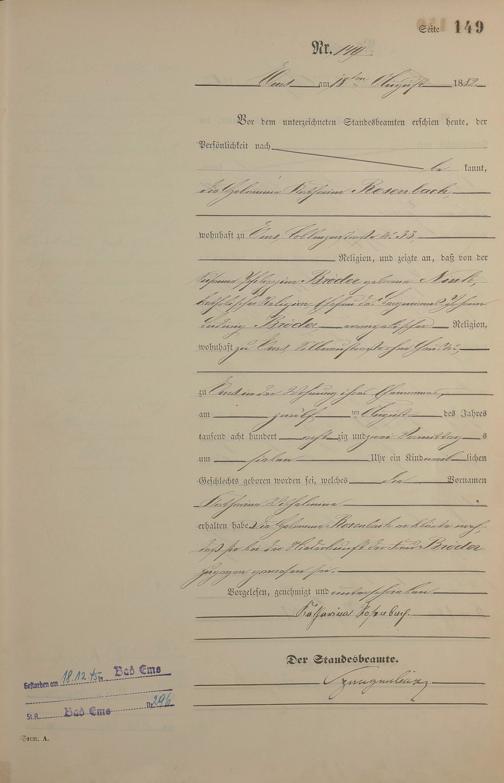 Seite 149
Nr. 149
Ems am 18ten August 1882
Vor dem unterzeichneten Standesbeamten erschien heute, der
Persönlichkeit nach
be kannt,
die Hebamme Katharina Rosenbach
wohnhaft zu Ems,
Religion, und zeigte an, daß von der
Bröder geborene
katholischer Religion Ehefrau des
Ludwig Bröder evangelischer Religion,
wohnhaft zu Ems
zu Ems in der Wohnung ihres Ehemannes,
am zwölften August des Jahres
tausend acht hundert acht zig und zwei Vormittags
um sieben Uhr ein Kind weiblichen
Geschlechts geboren worden sei, welches die Vornamen
Katharina Wilhelmine
erhalten habe. Die Hebamme Rosenbach erklärte noch,
daß sie bei der Niederkunft der Frau Bröder
zugegen gewesen sei.
Vorgelesen, genehmigt und unterschrieben
Katharina Rosenbach
Der Standesbeamte.
Gestorben am 18.12.45 in Bad Ems
St.A. Bad Ems Nr. 296
Form. A.